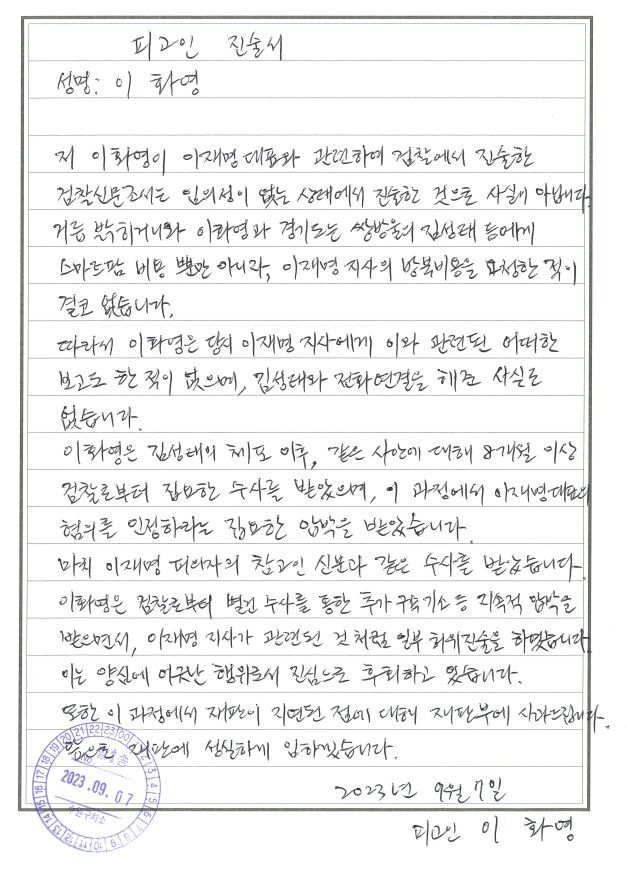 피고인 진술서
성명: 이 화영
저 이화영이 이재명 대표와 관련하여 검찰에서 진술한
검찰신문조서는 임의성이 없는 상태에서 진술한 것으로 사실이 아닙니다.
거듭 밝히거니와 이화영과 경기도는 쌍방울의 김성태 등에게
스마트팜 비용 뿐만 아니라, 이재명 지사의 방북비용을 요청한 적이
결코 없습니다.
따라서 이화영은 당시 이재명 지사에게 이와 관련된 어떠한
보고도 한 적이 없으며, 김성태와 전화연결을 해준 사실도
없습니다.
이화영은 김성태의 체포 이후, 같은 사안에 대해 8개월 이상
검찰로부터 집요한 수사를 받았으며, 이 과정에서 이재명대표의
혐의를 인정하라는 집요한 압박을 받았습니다.
마치 이재명 피의자의 참고인 신분과 같은 수사를 받았습니다.
이화영은 검찰로부터 별건 수사를 통한 추가 구속기소 등 지속적 압박을
받으면서, 이재명 지사가 관련된 것처럼 일부 허위진술을 하였습니다.
이는 양심에 어긋난 행위로서 진심으로 후회하고 있습니다.
또한 이 과정에서 재판이 지연된 점에 대해 재판부에 사과드립니다.
앞으로 재판에 성실하게 임하겠습니다.
2023년 9월 7일
피고인 이 화영
2023.09.07
수원구치소